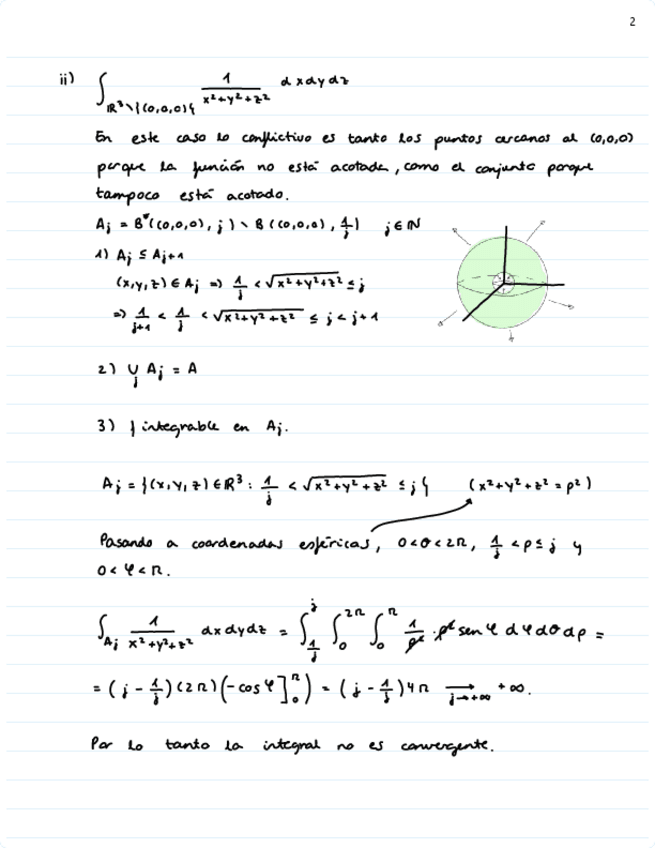 2
ii) ∫_{ℝ³\{(0,0,0)}} 1/(x²+y²+z²) dxdydz
En este caso lo conflictivo es tanto los puntos cercanos al (0,0,0)
porque la función no está acotada, como el conjunto porque
tampoco está acotado.
Aj = B((0,0,0), j) \ B((0,0,0), 1/j) j ∈ ℕ
1) Aj ⊆ Aj+1
(x,y,z) ∈ Aj ⇒ 1/j < √(x²+y²+z²) ≤ j
⇒ 1/(j+1) < 1/j < √(x²+y²+z²) ≤ j < j+1
2) ∪_j Aj = A
3) f integrable en Aj.
Aj = {(x,y,z) ∈ ℝ³ : 1/j < √(x²+y²+z²) ≤ j} (x²+y²+z² = ρ²)
Pasando a coordenadas esféricas, 0<θ<2π, 1/j < ρ ≤ j y
0<φ<π.
∫_{Aj} 1/(x²+y²+z²) dxdydz = ∫_{1/j}^{j} ∫_0^{2π} ∫_0^{π} 1/ρ² · ρ² sen φ dφ dθ dρ =
= (j - 1/j)(2π)(-cos φ]_0^π) = (j - 1/j) 4π →_{j→+∞} +∞.
Por lo tanto la integral no es convergente.